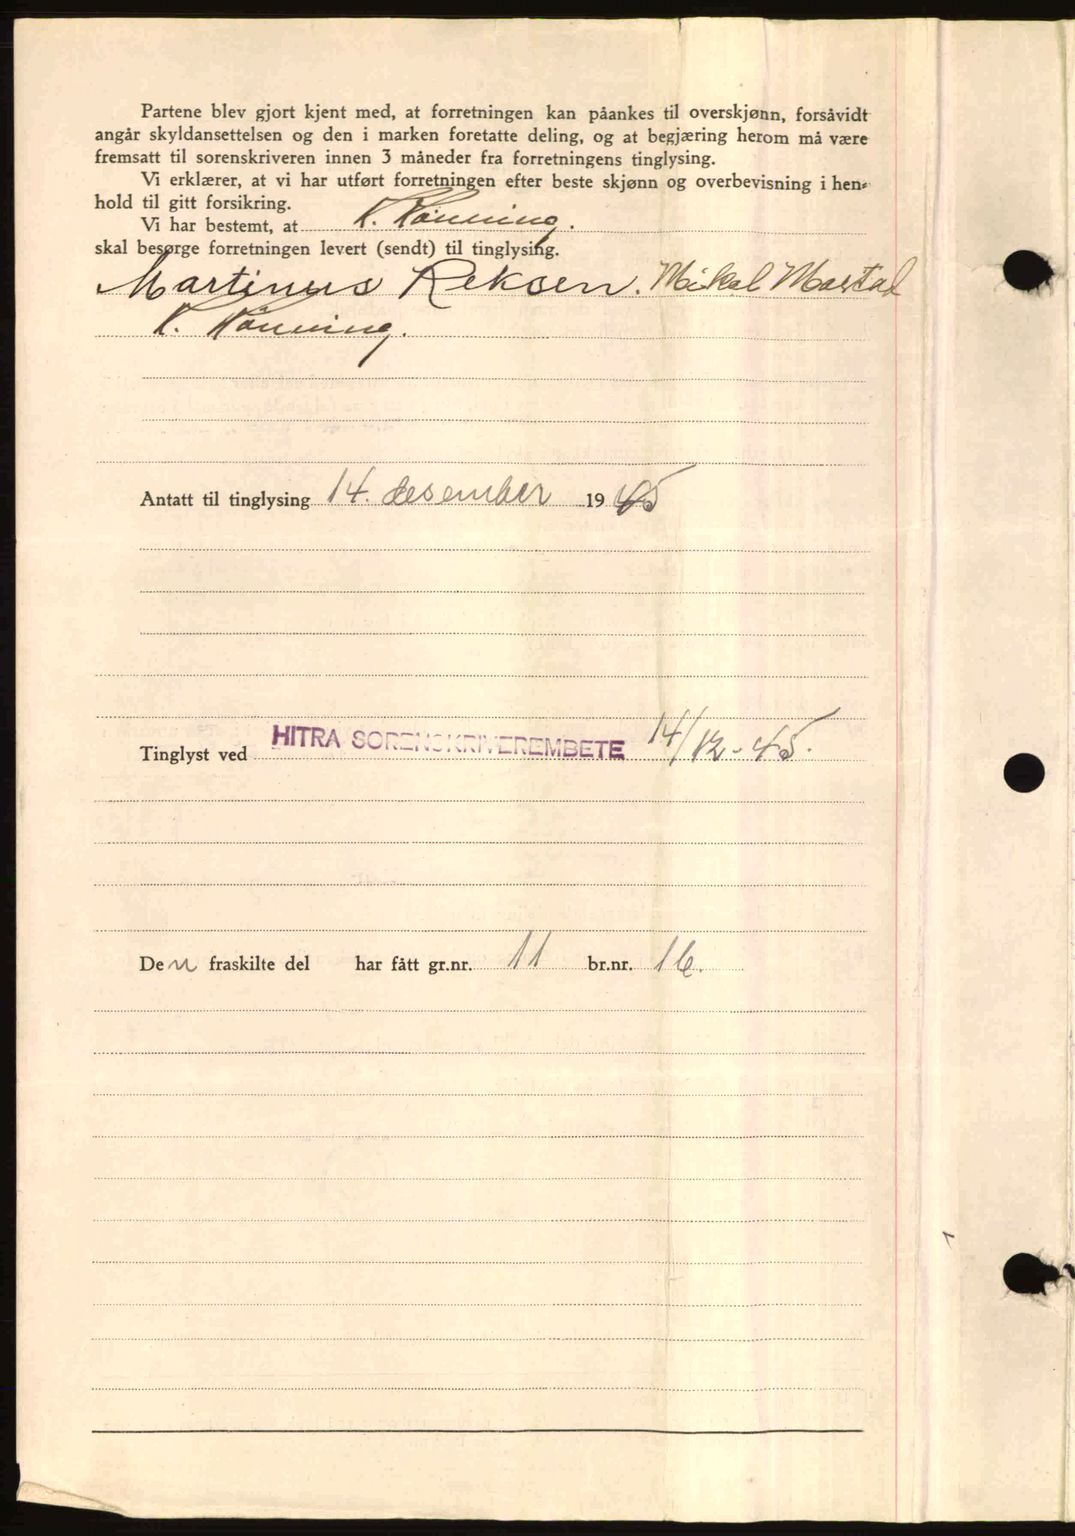 Partene blev gjort kjent med, at forretningen kan påankes til overskjønn, forsåvidt
angår skyldansettelsen og den i marken foretatte deling, og at begjæring herom må være
fremsatt til sorenskriveren innen 3 måneder fra forretningens tinglysing.
Vi erklærer, at vi har utført forretningen efter beste skjønn og overbevisning i hen-
hold til gitt forsikring.
Vi har bestemt, at K. Rönning.
skal besørge forretningen levert (sendt) til tinglysing.
Martinus Reksen. Mikal Mastad
K. Rönning.
Antatt til tinglysing 14. desember 1945
Tinglyst ved HITRA SORENSKRIVEREMBETE 14/12-45.
Den fraskilte del har fått gr.nr. 11 br.nr. 16.